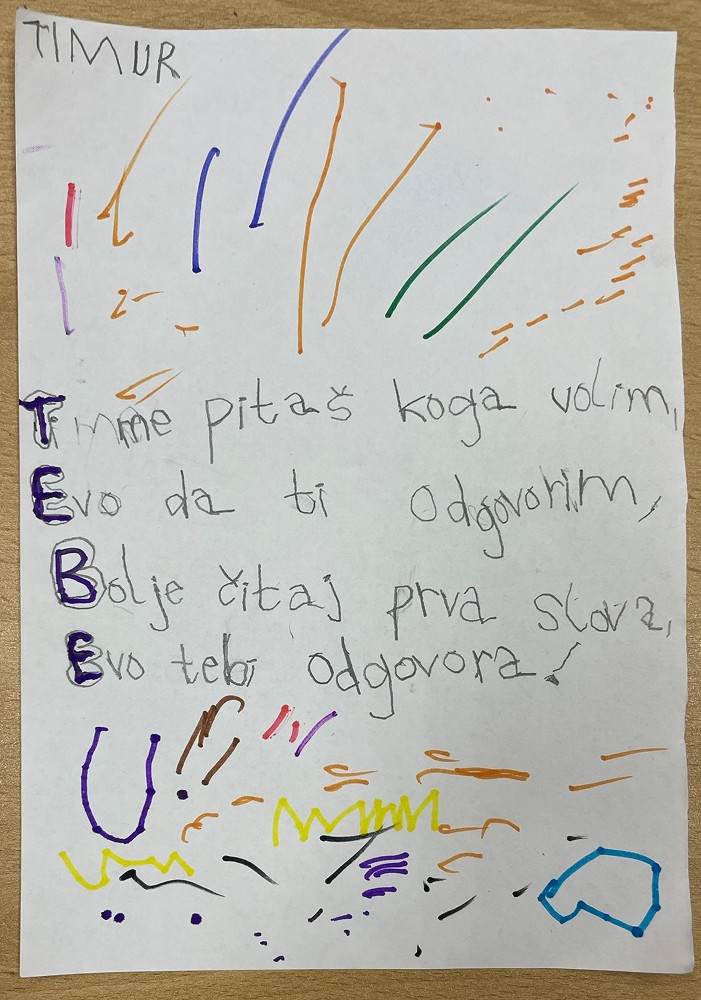 TIMUR
Ti mme pitaš koga volim,
Evo da ti odgovorim,
Bolje čitaj prva slova,
Evo tebi odgovora!